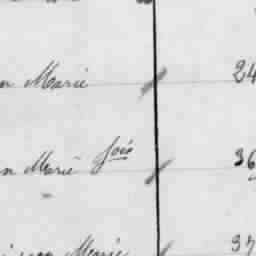 n Marie 24
n Marie 36
Marie 37